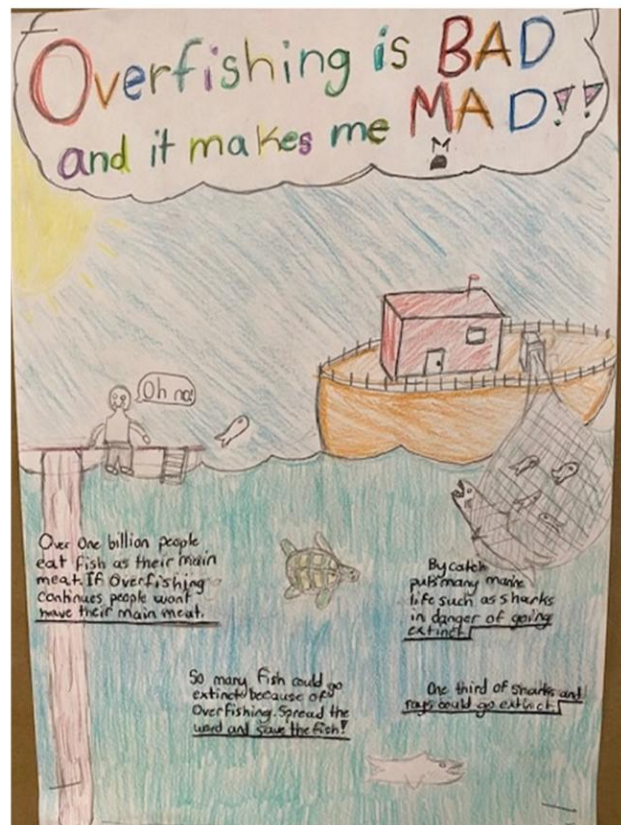 Overfishing is BAD
and it makes me MAD!!
Oh no!
Over One billion people
eat fish as their main
meat. If Overfishing
continues people wont
have their main meat.
Bycatch
puts many marine
life such as sharks
in danger of going
extinct.
So many fish could go
extinct because of
Overfishing. Spread the
word and save the fish!
One third of sharks and
rays could go extinct.